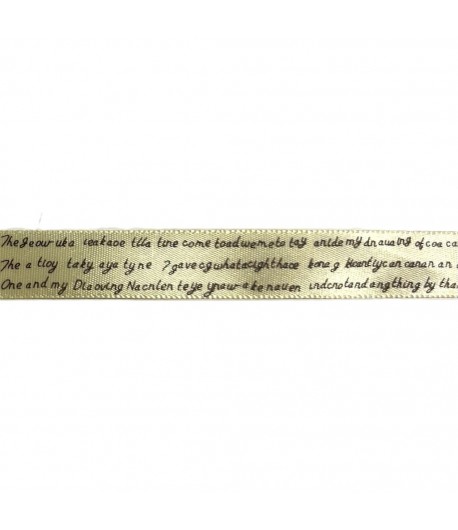 Thegeow uka ieakaoe tlla tine come toadwemeto tag anide my dnauaing of coa ca
The a tloy taky aya ty ne ? gavecgwhatocighthace bona g kicantlycan canan an a
One and my Dlaoving Nacnlen teye ynawr a ke nauen indcnotand angthing by tha